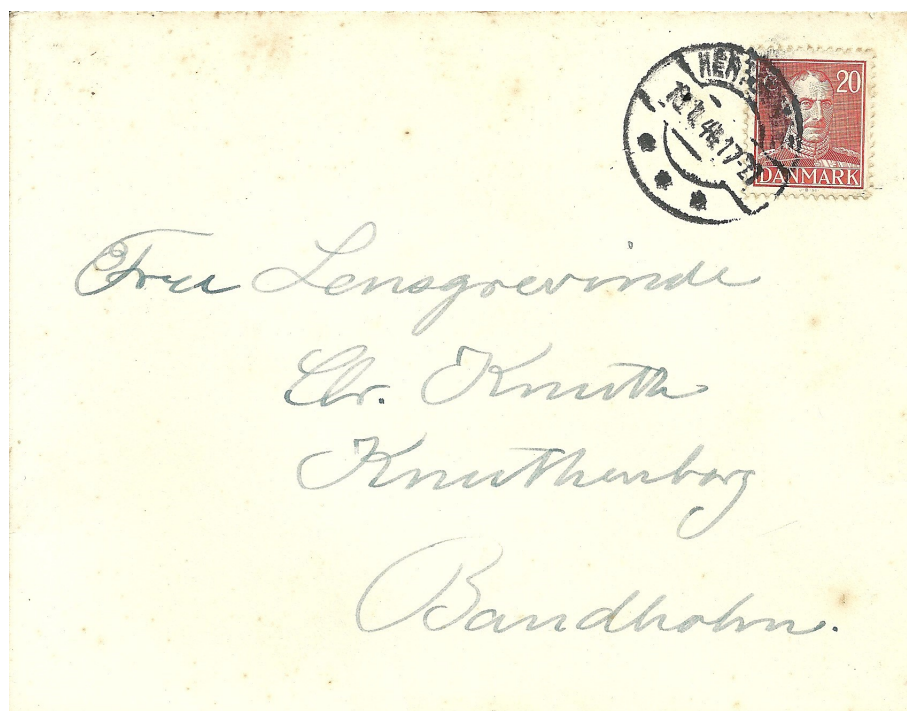 20
DANMARK
Frue Lensgrevinde
Chr. Knuth
Knuthenborg
Bandholm.